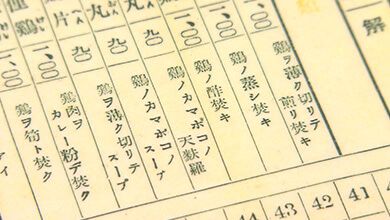 解
鶏ヲ薄ク切リテ煎リ焚キ
鶏ノ蒸シ焚キ
鶏ノ酢焚キ
一、〇〇
鶏ノカマボコノ天麩羅
丸
鶏ノカマボコノスープ
丸
九〇
鶏ヲ薄ク切リテスープ
片
九〇
鶏肉ヲカレー粉デ焚ク
鶏
一、〇〇
鶏ヲ筍ト焚ク
41
42
43
44